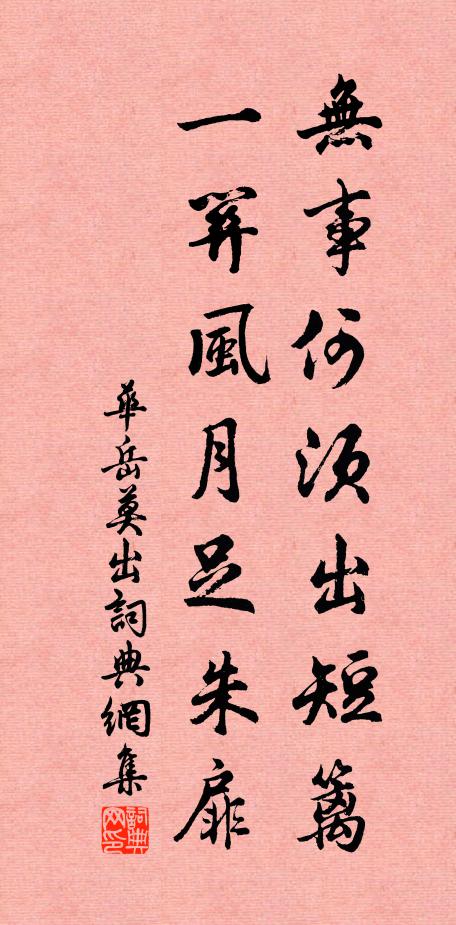 無事何須出短篱
一風月足朱扉
華岳莫出詞典網集
詞典网印